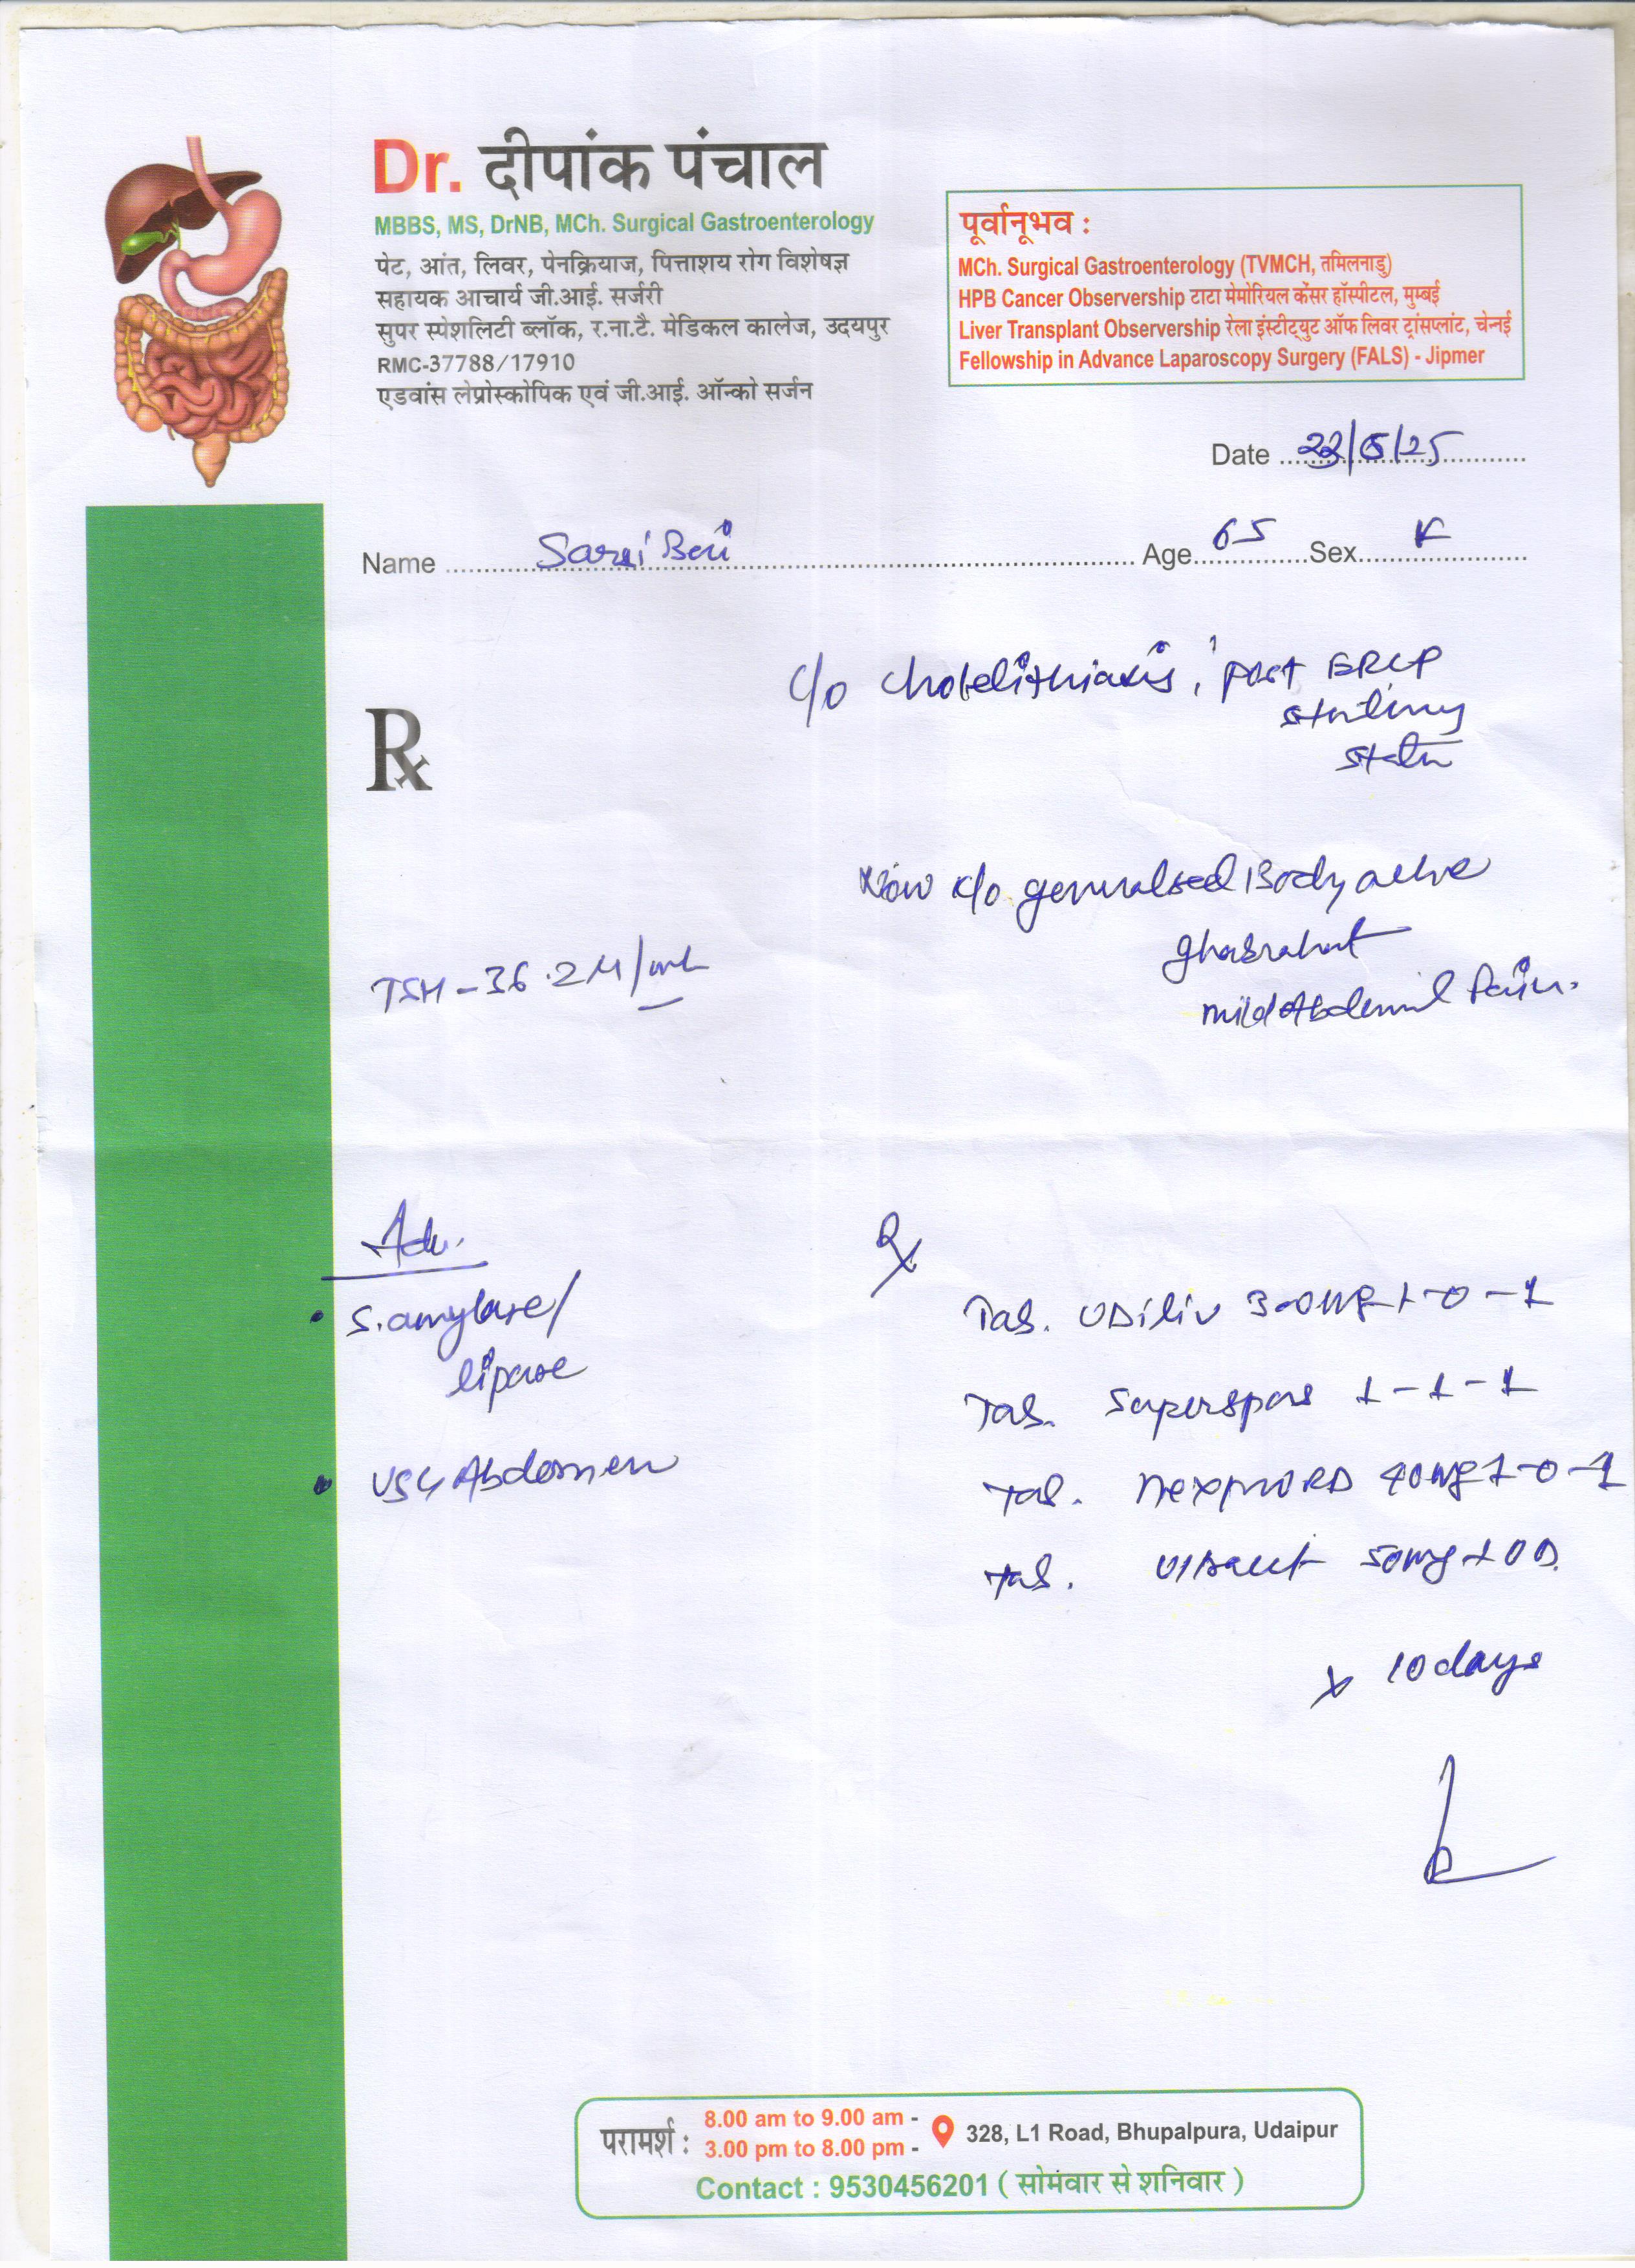 Dr. दीपांक पंचाल
MBBS, MS, DrNB, MCh. Surgical Gastroenterology
पेट, आंत, लिवर, पेनक्रियाज, पित्ताशय रोग विशेषज्ञ
सहायक आचार्य जी.आई. सर्जरी
सुपर स्पेशलिटी ब्लॉक, र.ना.टै. मेडिकल कालेज, उदयपुर
RMC-37788/17910
एडवांस लेप्रोस्कोपिक एवं जी.आई. ऑन्को सर्जन
पूर्वानूभव :
MCh. Surgical Gastroenterology (TVMCH, तमिलनाडु)
HPB Cancer Observership टाटा मेमोरियल कैंसर हॉस्पीटल, मुम्बई
Liver Transplant Observership रेला इंस्टीट्युट ऑफ लिवर ट्रांसप्लांट, चेन्नई
Fellowship in Advance Laparoscopy Surgery (FALS) - Jipmer
Date 22/5/25
Name Age 65 Sex F
c/o cholelithiasis, post ERCP
stenting
status
Rx
Now c/o generalised Body ache
ghabrahat
mild Abdominal Pain.
TSH - 36.2 M/mL
Adv.
• S. amylase/
lipase
• USG Abdomen
Rx
Tab. UDiliv 300mg 1-0-1
Tab. Superspas 1-1-1
Tab. nexpro RD 40mg 1-0-1
Tab. 50mg 1 OD.
x 10 days
परामर्श :
8.00 am to 9.00 am -
3.00 pm to 8.00 pm -
328, L1 Road, Bhupalpura, Udaipur
Contact : 9530456201 ( सोमंवार से शनिवार )